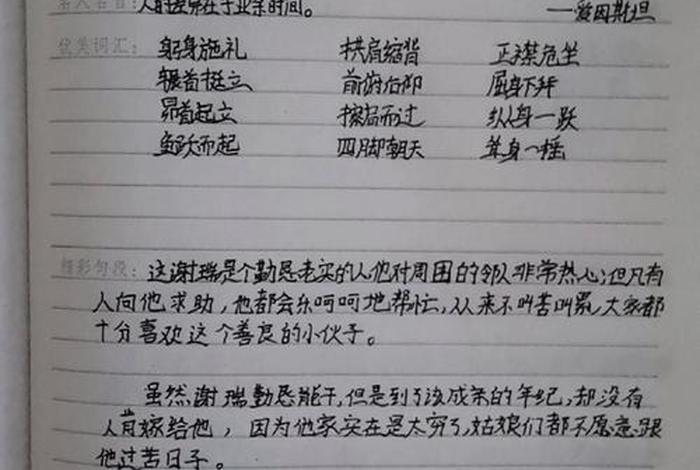 名人名言：人的差异在于业余时间。
——爱因斯坦
优美词汇：躬身施礼 拱肩缩背 正襟危坐
辗首挺立 前俯后仰 屈身下拜
昂首起立 擦肩而过 纵身一跃
鱼跃而起 四脚朝天 耸身一摇
精彩句段：这谢瑞是个勤恳老实的人他对周围的邻队非常热心；但凡有
人向他求助，他都会乐呵呵地帮忙，从来不叫苦叫累，大家都
十分喜欢这个善良的小伙子。
虽然谢瑞勤恳能干，但是到了该成亲的年纪，却没有
人肯嫁给他，因为他家实在是太穷了，姑娘们都不愿意跟
他过苦日子。